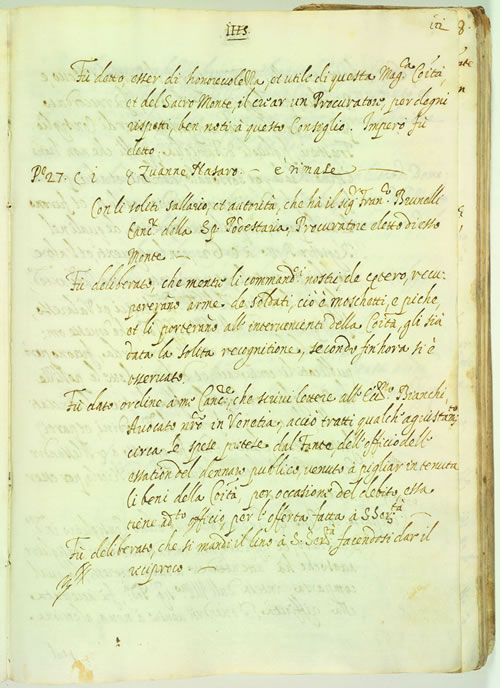 IIIS
Fù detto, esser di honorevolezza, et utile di questa Mag.ca Coità,
et del Sacro Monte, il crear un Procuratore, per degni
rispetti, ben noti à questo Conseglio. Imperò fù
eletto.
P.e 27. C i 8 Zuanne Nasaro. è rimase
Con li soliti sallario, et autorità, che hà il sig.r Fran.co Brunelli
Canc.r della Sp. Podestaria, Procuratore eletto di esso
Monte
Fù deliberato, che mentre li command.i nostri de cetero, recu-
pererano arme de soldati, cioè moschetti, e piche,
et li porterano all' intervenienti della Coità, gli sia
data la solita recognitione, secondo fin hora si è
osservato.
Fù dato ordine à me Canc.e, che scrivi lettere all' Ecc.mo Bianchi,
Avocato nro in Venetia, acciò tratti qualche agiustam.to
circa le spese pretese dal Fante dell' officio dell'
essation del dennaro publico, venuto à pigliar in tenuta
li beni della Coità, per occasione del debito, essa
tiene ad.to officio, per l' offerta fatta à S. Ser.tà
Fù deliberato, che si mandi il lino à S. Ser.tà facendosi dar il
recipreco